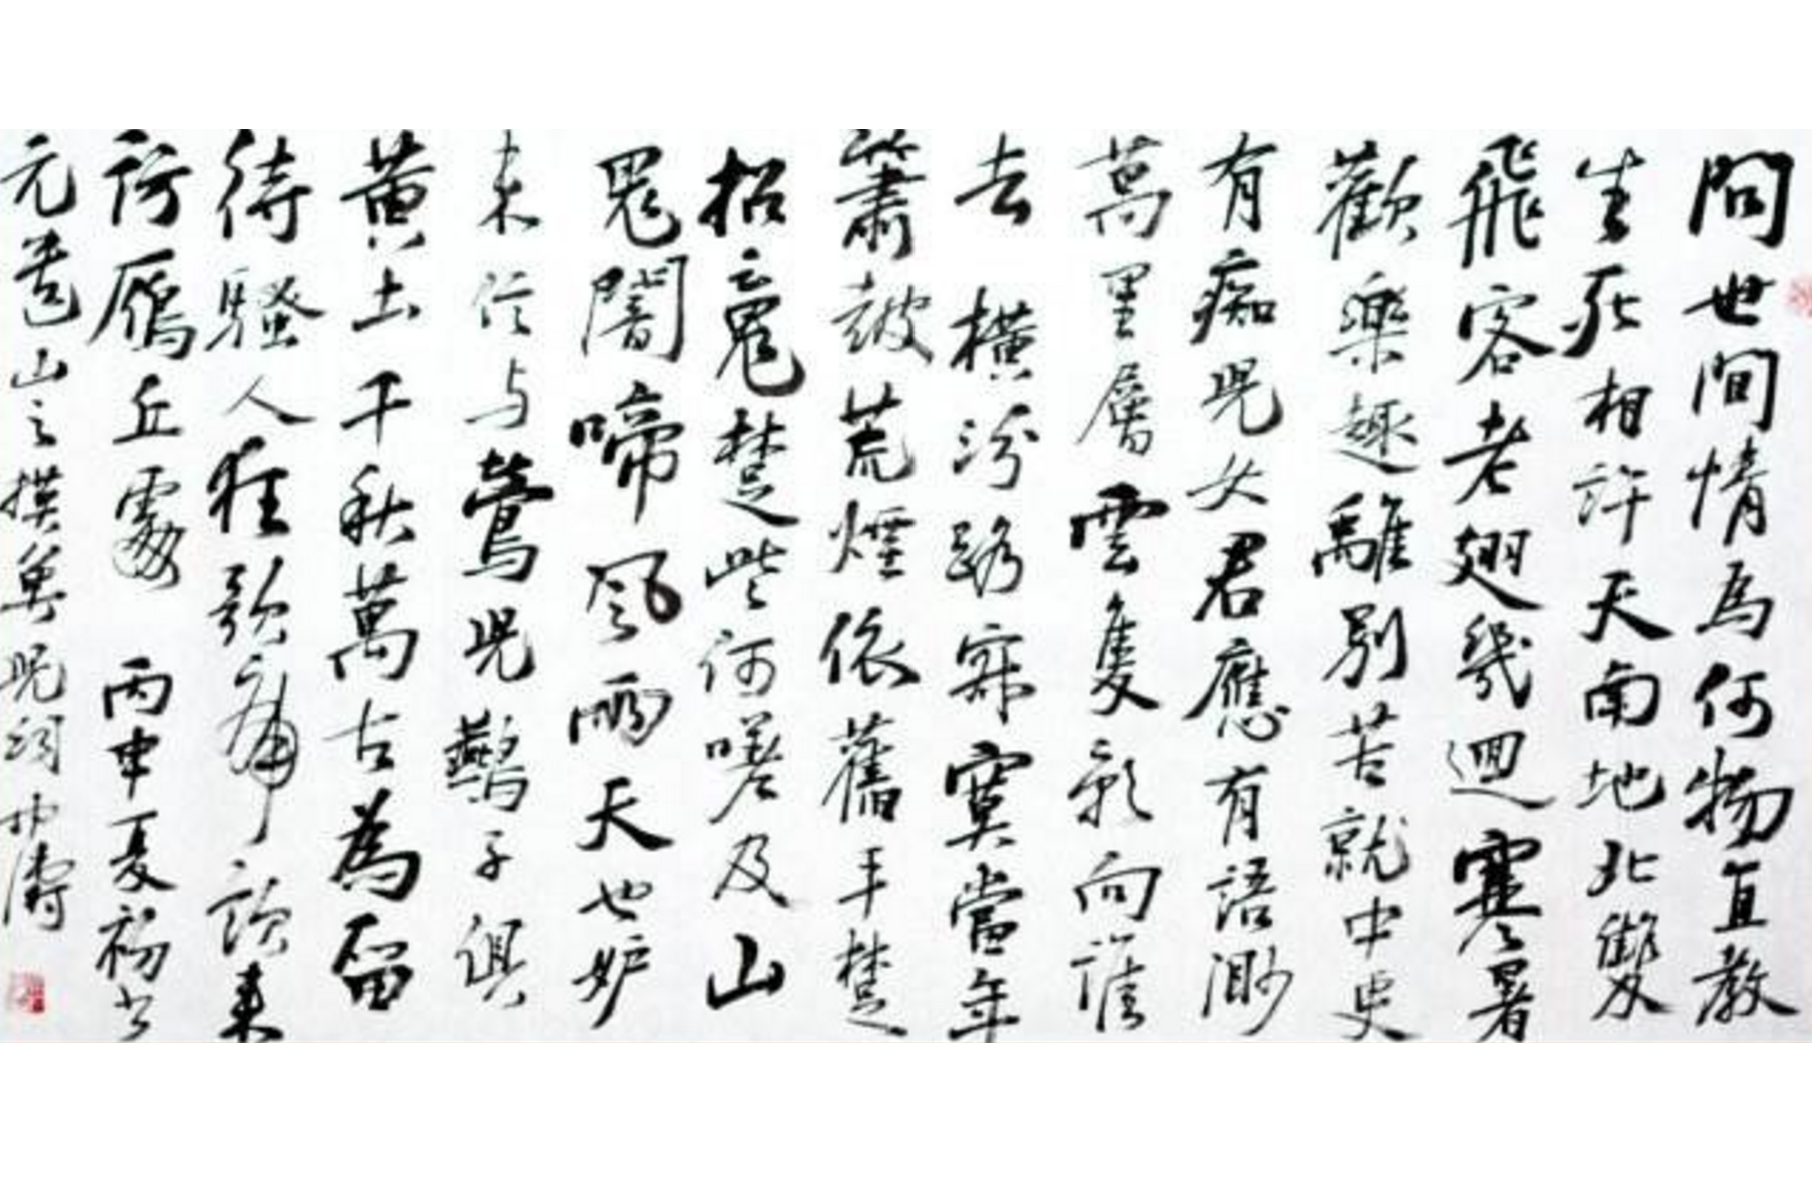 問世間情為何物直教
生死相許天南地北雙
飛客老翅幾迴寒暑
歡樂趣離別苦就中更
有痴兒女君應有語渺
萬里層雲隻影向誰
去橫汾路寂寞當年
簫鼓荒煙依舊平楚
招魂楚些何嗟及山
鬼闇啼風雨天也妒
未信与鶯兒鷰子俱
黃土千秋萬古為留
待騷人狂歌痛飲來
訪雁丘處 丙申夏初書
元遺山之摸魚兒詞